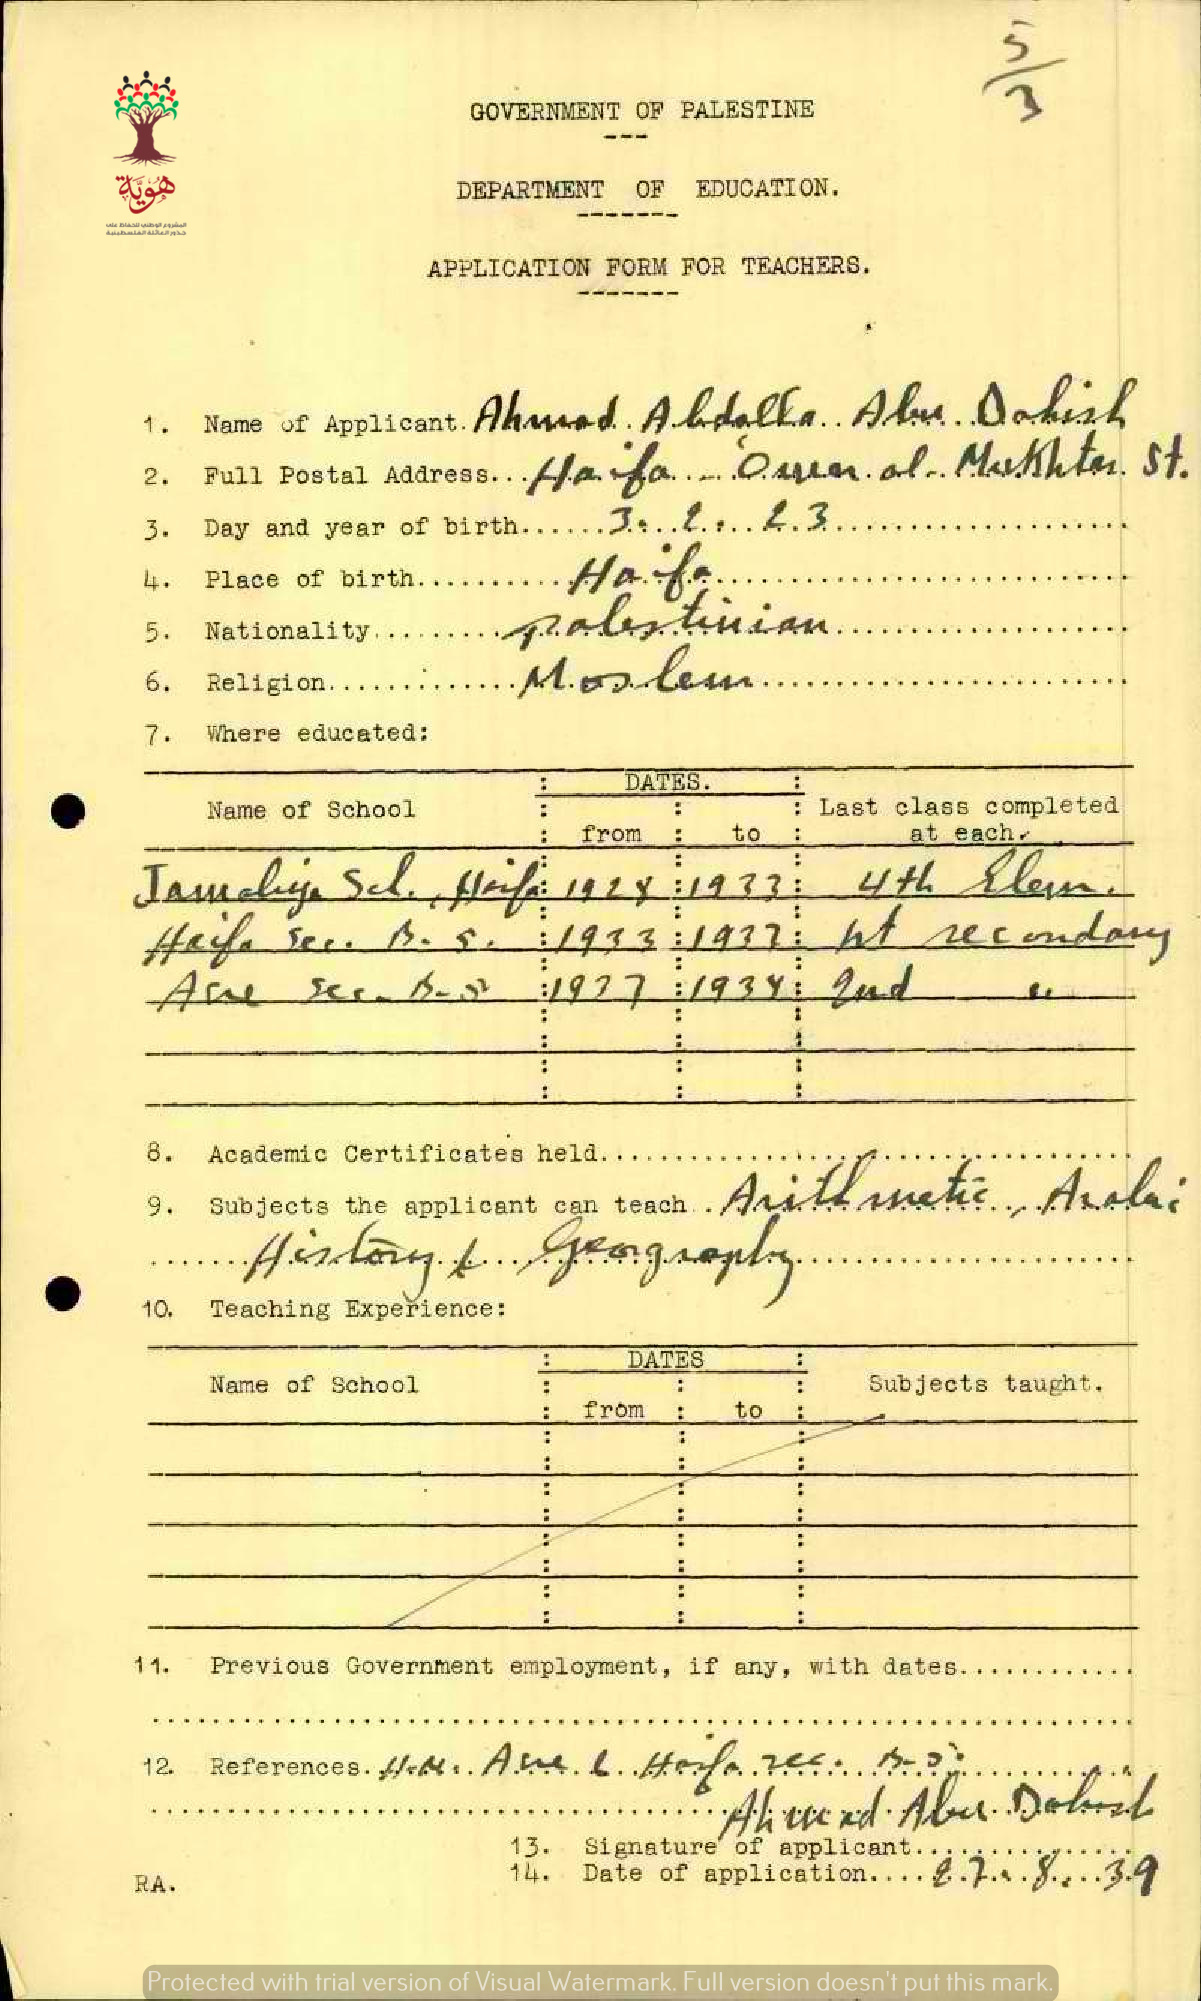 5/3
هوية
المشروع الوطني للحفاظ على
جذور العائلة الفلسطينية
GOVERNMENT OF PALESTINE
DEPARTMENT OF EDUCATION.
APPLICATION FORM FOR TEACHERS.
1. Name of Applicant. Ahmad Abdalla Abu Dahish
2. Full Postal Address... Haifa - Omen al-Mukhtar St.
3. Day and year of birth...... 3. 2. 23
4. Place of birth.......... Haifa
5. Nationality......... palestinian
6. Religion............. Moslem
7. Where educated:
DATES.
Name of School Last class completed
from to at each.
Jamaliya Sch., Haifa 1928 1933 4th Elem.
Haifa Sec. B. S. 1933 1937 1st secondary
Acre Sec. B.S 1937 1938 2nd "
8. Academic Certificates held.
9. Subjects the applicant can teach.. Arithmetic, Arabic
History & Geography
10. Teaching Experience:
DATES
Name of School Subjects taught.
from to
11. Previous Government employment, if any, with dates.
12. References. H.M. Acre & Haifa sec. B.S.
Ahmad Abu Dahish
13. Signature of applicant.
14. Date of application.... 27. 8. 39
RA.
Protected with trial version of Visual Watermark. Full version doesn't put this mark.